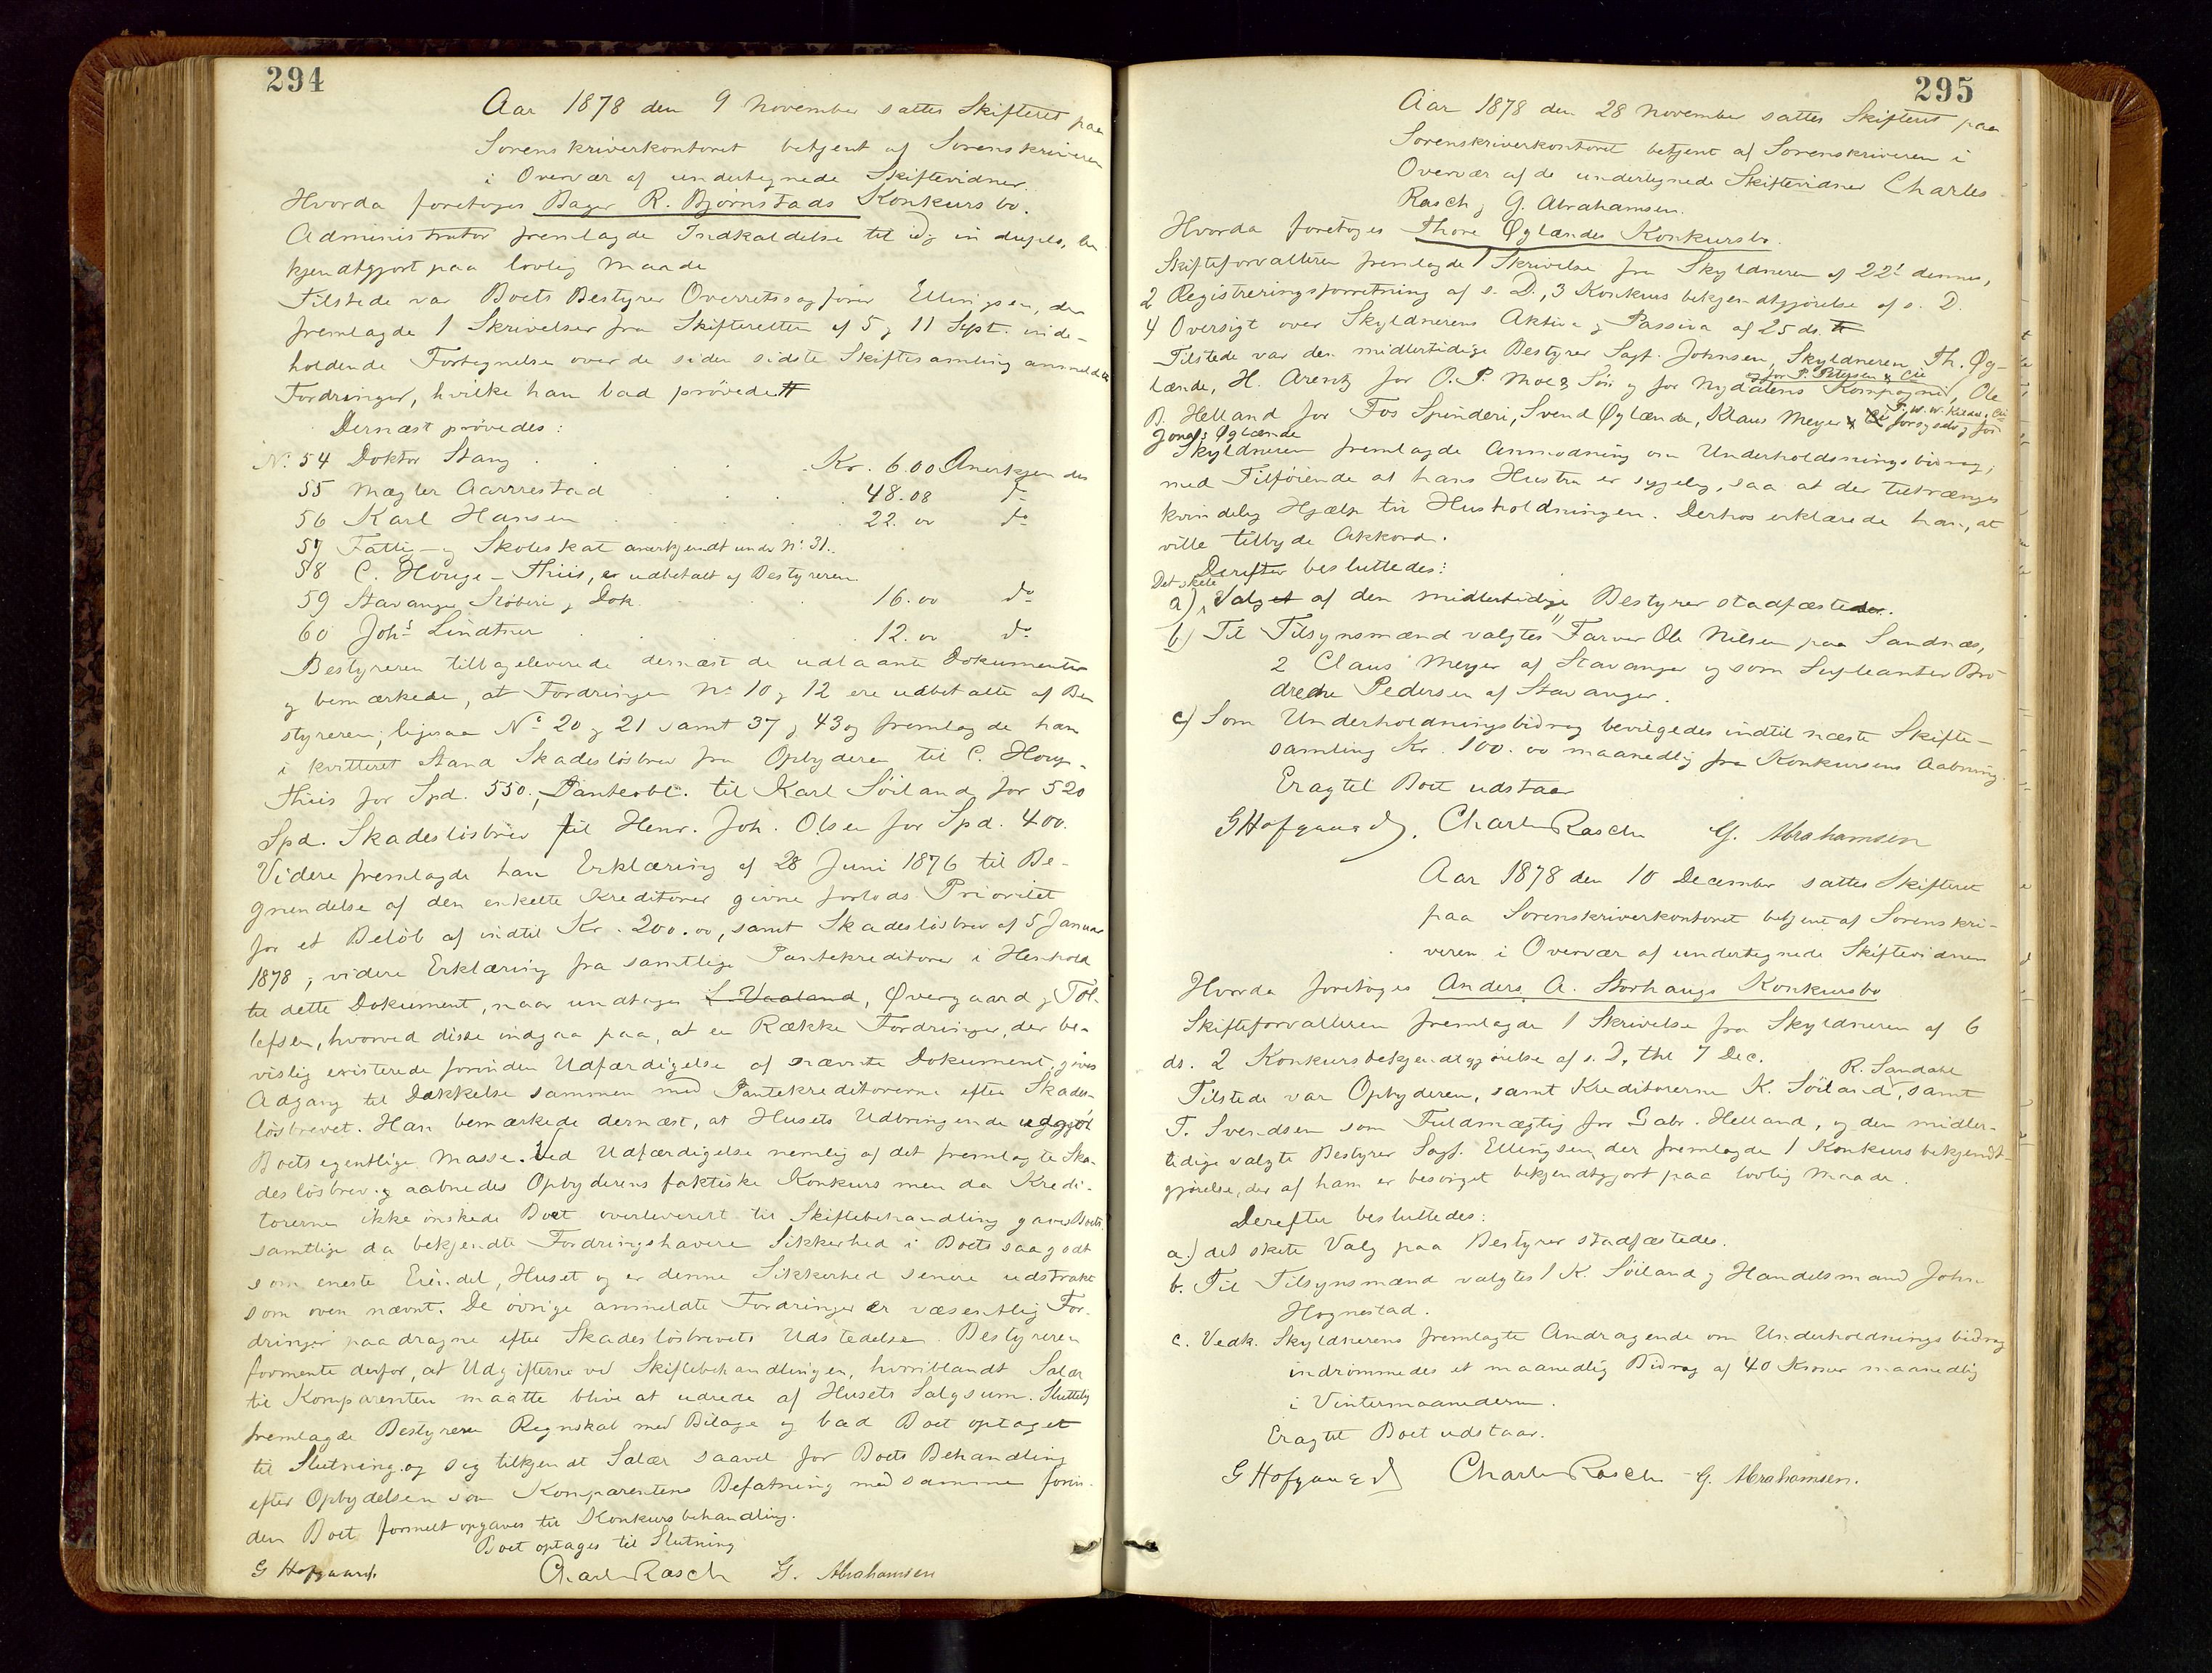 294
Aar 1878 den 9 November sattes Skifteret paa
Sorenskriverkontoret betjent af Sorenskriveren
i Overvær af undertegnede Skiftevidner.
Hvorda foretoges Bager R. Bjørnstads Konkursbo.
Administrator fremlagde Indkaldelse til idag in duplo, be-
kjendtgjort paa lovlig Maade
Tilstede var Boets Bestyrer Overretssagfører Ellingsen, der
fremlagde 1 Skrivelser fra Skifteretten af 5 og 11 Sept. inde-
holdende Fortegnelse over de siden sidste Skiftesamling anmeldte
Fordringer, hvilke han bad prøvede
Dernæst prøvedes:
No 54 Doktor Stang Kr. 6.00 Anerkjendes
55 Mægler Aarrestad 48.08 do
56 Karl Hansen 22.00 do
57 Fattig- og Skoleskat anerkjendt under No 31.
58 C. Houge-Thiis, er udbetalt af Bestyreren
59 Stavanger Støberi og Dok 16.00 do
60 Johs Lindtner 12.00 do
Bestyreren tilbageleverede dernæst de udlaante Dokumenter
og bemærkede, at Fordringer No 10 og 12 ere udbetalte af Be-
styreren, ligesaa No 20 og 21 samt 37 og 43 og fremlagde han
i kvitteret Stand Skadesløsbrev fra Opbyderen til C. Houge-
Thiis for Spd. 550., Panteobl. til Karl Søiland for 520
Spd. Skadesløsbrev til Henr. Joh. Olsen for Spd. 400.
Videre fremlagde han Erklæring af 28 Juni 1876 til Be-
grundelse af den enkelte Kreditorer givne forlods Prioritet
for et Beløb af indtil Kr. 200.00, samt Skadesløsbrev af 5 Januar
1878, videre Erklæring fra samtlige Pantekreditorer i Henhold
til dette Dokument, naar undtages L. Vaaland, Øvergaard og Tol-
lefsen, hvorved disse indgaa paa, at en Række Fordringer, der be-
vislig existerede forinden Udfærdigelse af nævnte Dokument, gives
Adgang til Dækkelse sammen med Pantekreditorerne efter Skades-
løsbrevet. Han bemærkede dernæst, at Husets Udbringende udgjør
Boets egentlige Masse. Ved Udfærdigelse nemlig af det fremlagte Ska-
desløsbrev aabnedes Opbyderens faktiske Konkurs men da Kredi-
torerne ikke ønskede Boet overleveret til Skiftebehandling gaves Boets
samtlige da bekjendte Fordringshavere Sikkerhed i Boets saagodt
som eneste Eiendel, Huset og er denne Sikkerhed senere udstrakt
som oven nævnt. De øvrige anmeldte Fordringer er væsentlig For-
dringer paadragne efter Skadesløsbrevets Udstedelse. Bestyreren
formente derfor, at Udgifterne ved Skiftebehandlingen, hvoriblandt Salær
til Komparenten maatte blive at udrede af Husets Salgsum. Sluttelig
fremlagde Bestyreren Regnskab med Bilage og bad Boet optaget
til Slutning og sig tilkjendt Salær saavel for Boets Behandling
efter Opbydelsen som Komparentens Befatning med samme forin-
den Boet formelt opgaves til Konkursbehandling.
Boet optages til Slutning
G Hofgaard Charles Rasch G. Abrahamsen
295
Aar 1878 den 28 November sattes Skifteret paa
Sorenskriverkontoret betjent af Sorenskriveren i
Overvær af de undertegnede Skiftevidner Charles
Rasch og G. Abrahamsen.
Hvorda foretoges Thore Øglændes Konkursbo.
Skifteforvalteren fremlagde 1 Skrivelse fra Skyldneren af 22de dennes,
2 Registreringsforretning af s. D., 3 Konkursbekjendtgjørelse af s. D.
4 Oversigt over Skyldnerens Aktiva og Passiva af 25 ds.
Tilstede var den midlertidige Bestyrer Sagf. Johnsen, Skyldneren Th. Øg-
og for P. Petersen & Cie
lænde, H. Arentz for O. P. Moe & Søn og for Nydalens Kompagni, Ole
B. Helland for Fos Spinderi, Svend Øglænde, Klaus Meyer for sig selv og for
Jonas Øglænde
Skyldneren fremlagde Anmodning om Underholdningsbidrag,
med Tilføiende at hans Hustru er sygelig, saa at der tiltrænges
kvindelig Hjælp til Husholdningen. Derhos erklærede han, at
ville tilbyde Akkord.
Derefter besluttedes:
Det skete
a) Valget af den midlertidige Bestyrer stadfæstedes.
b) Til Tilsynsmænd valgtes 1 Farver Ole Nilsen paa Sandnæs,
2 Claus Meyer af Stavanger og som Supleanter Brø-
drene Pedersen af Stavanger.
c) Som Underholdningsbidrag bevilgedes indtil næste Skifte-
samling Kr. 100.00 maanedlig fra Konkursens Aabning.
Eragtet Boet udstaar
G Hofgaard. Charles Rasch G. Abrahamsen
Aar 1878 den 10 December sattes Skifteret
paa Sorenskriverkontoret betjent af Sorenskri-
veren i Overvær af undertegnede Skiftevidner
Hvorda foretoges Anders A. Storhaugs Konkursbo
Skifteforvalteren fremlagde 1 Skrivelse fra Skyldneren af 6
ds. 2 Konkursbekjendtgjørelse af s. D. thl 7 Dec.
R. Sandahl
Tilstede var Opbyderen, samt Kreditorerne K. Søiland, samt
T. Svendsen som Fuldmægtig for Gabr. Helland, og den midler-
tidige valgte Bestyrer Sagf. Ellingsen, der fremlagde 1 Konkursbekjendt-
gjørelse, der af ham er besørget bekjendtgjort paa lovlig Maade.
Derefter besluttedes:
a.) det skete Valg paa Bestyrer stadfæstedes.
b. Til Tilsynsmænd valgtes 1 K. Søiland og Handelsmand John
Hognestad.
c. Vedk. Skyldnerens fremlagte Andragende om Underholdningsbidrag
indrømmedes et maanedlig Bidrag af 40 Kroner maanedlig
i Vintermaanederne.
Eragtet Boet udstaar.
G Hofgaard Charles Rasch G. Abrahamsen.